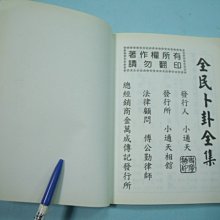 全民卜卦全集
著作權所有
請勿翻印
發行人 小通天
發行所 小通天相館
法律顧問 傅公勤律師
總經銷商金萬成傳記發行所